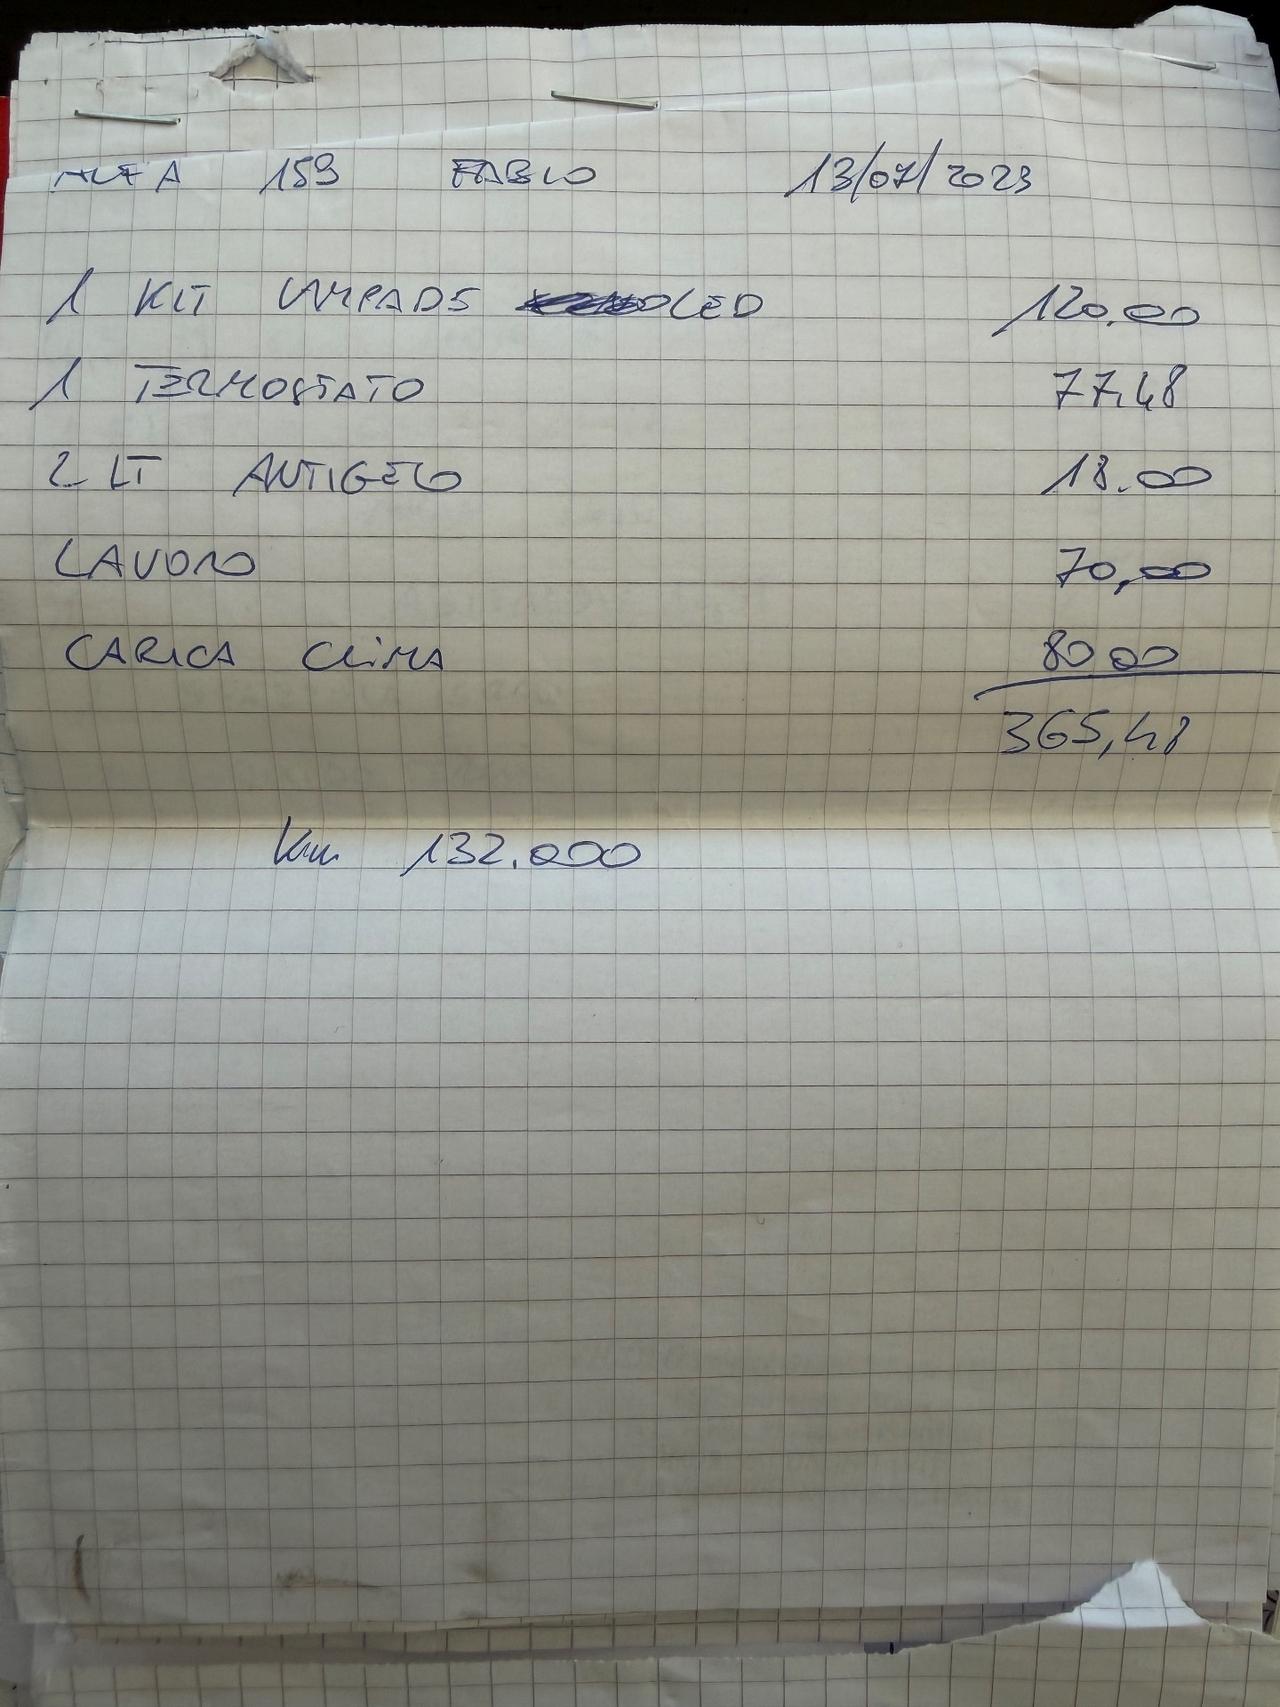 ALFA 159 FABIO 13/07/2023
1 KIT LAMPADE LED 120.00
1 TERMOSTATO 77,48
2 LT ANTIGELO 18.00
LAVORO 70,00
CARICA CLIMA 80 00
365,48
Km 132.000